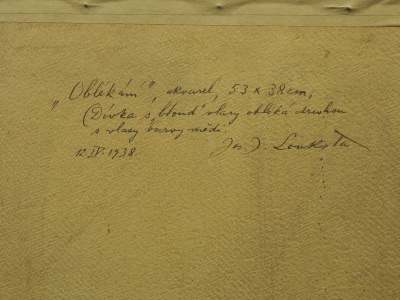 „Oblékání", akvarel, 53 x 38 cm,
(Dívka s „blond" vlasy obléká druhou
s vlasy barvy mědi.
12.IV.1938. Jos. J. Loukota